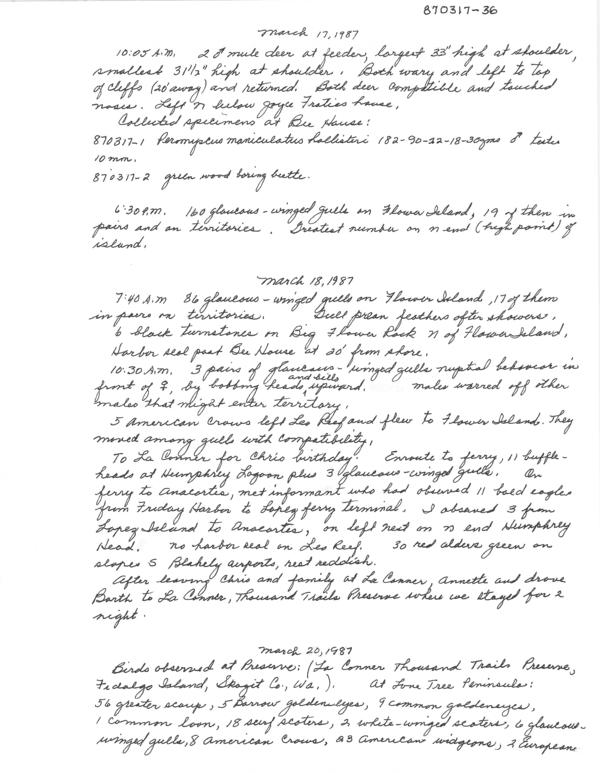 870317-36
March 17, 1987
10:05 A.M. 2 ♂ mule deer at feeder, largest 33" high at shoulder,
smallest 31½" high at shoulder. Both wary and left to top
of cliffs (20' away) and returned. Both deer compatible and touched
noses. Left N below Joyce Fraties house.
Collected specimens at Bee House:
870317-1 Peromyscus maniculatus hollisteri 182-90-22-18-30gms ♂ testes
10 mm.
870317-2 green wood boring beetle.
6:30 P.M. 160 glaucous-winged gulls on Flower Island, 19 of them in
pairs and on territories. Greatest number on N end (high point) of
island.
March 18, 1987
7:40 A.M 86 glaucous-winged gulls on Flower Island, 17 of them
in pairs on territories. Gull preen feathers after showers.
6 black turnstones on Big Flower Rock N of Flower Island.
Harbor seal past Bee House at 20' from shore.
10:30 A.M. 3 pairs of glaucous-winged gulls nuptial behavior in
front of ♀, by bobbing heads and bills upward. males warred off other
males that might enter territory.
5 American crows left Leo Reef and flew to Flower Island. They
moved among gulls with compatibility.
To La Conner for Chris birthday. Enroute to ferry, 11 buffle-
heads at Humphrey Lagoon plus 3 glaucous-winged gulls. On
ferry to Anacortes, met informant who had observed 11 bald eagles
from Friday Harbor to Lopez ferry terminal. I observed 3 from
Lopez Island to Anacortes, on left nest on N end Humphrey
Head. No harbor seal on Leo Reef. 30 red alders green on
slopes S Blakely airports, rest reddish.
After leaving Chris and family at La Conner, Annette and drove
Barth to La Conner, Thousand Trails Preserve where we stayed for 2
night.
March 20, 1987
Birds observed at Preserve: (La Conner Thousand Trails Preserve,
Fidalgo Island, Skagit Co., Wa.). At Lone Tree Peninsula:
56 greater scaup, 5 Barrow goldeneyes, 9 common goldeneyes,
1 common loon, 18 surf scoters, 2 white-winged scoters, 6 glaucous-
winged gulls, 8 American crows, 23 American widgeons, 2 European